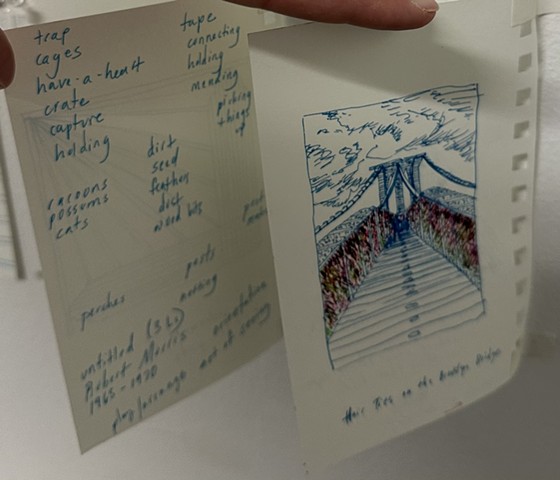 trap
cages
have-a-heart
crate
capture
holding
racoons
possoms
cats
tape
connecting
holding
mending
picking
things
up
dirt
seed
feather
dirt
wood bits
posts
perches
untitled (3 Ls)
Robert Morris
1965-1970
play/arrange
orientation
Hair Ties on the Brooklyn Bridge